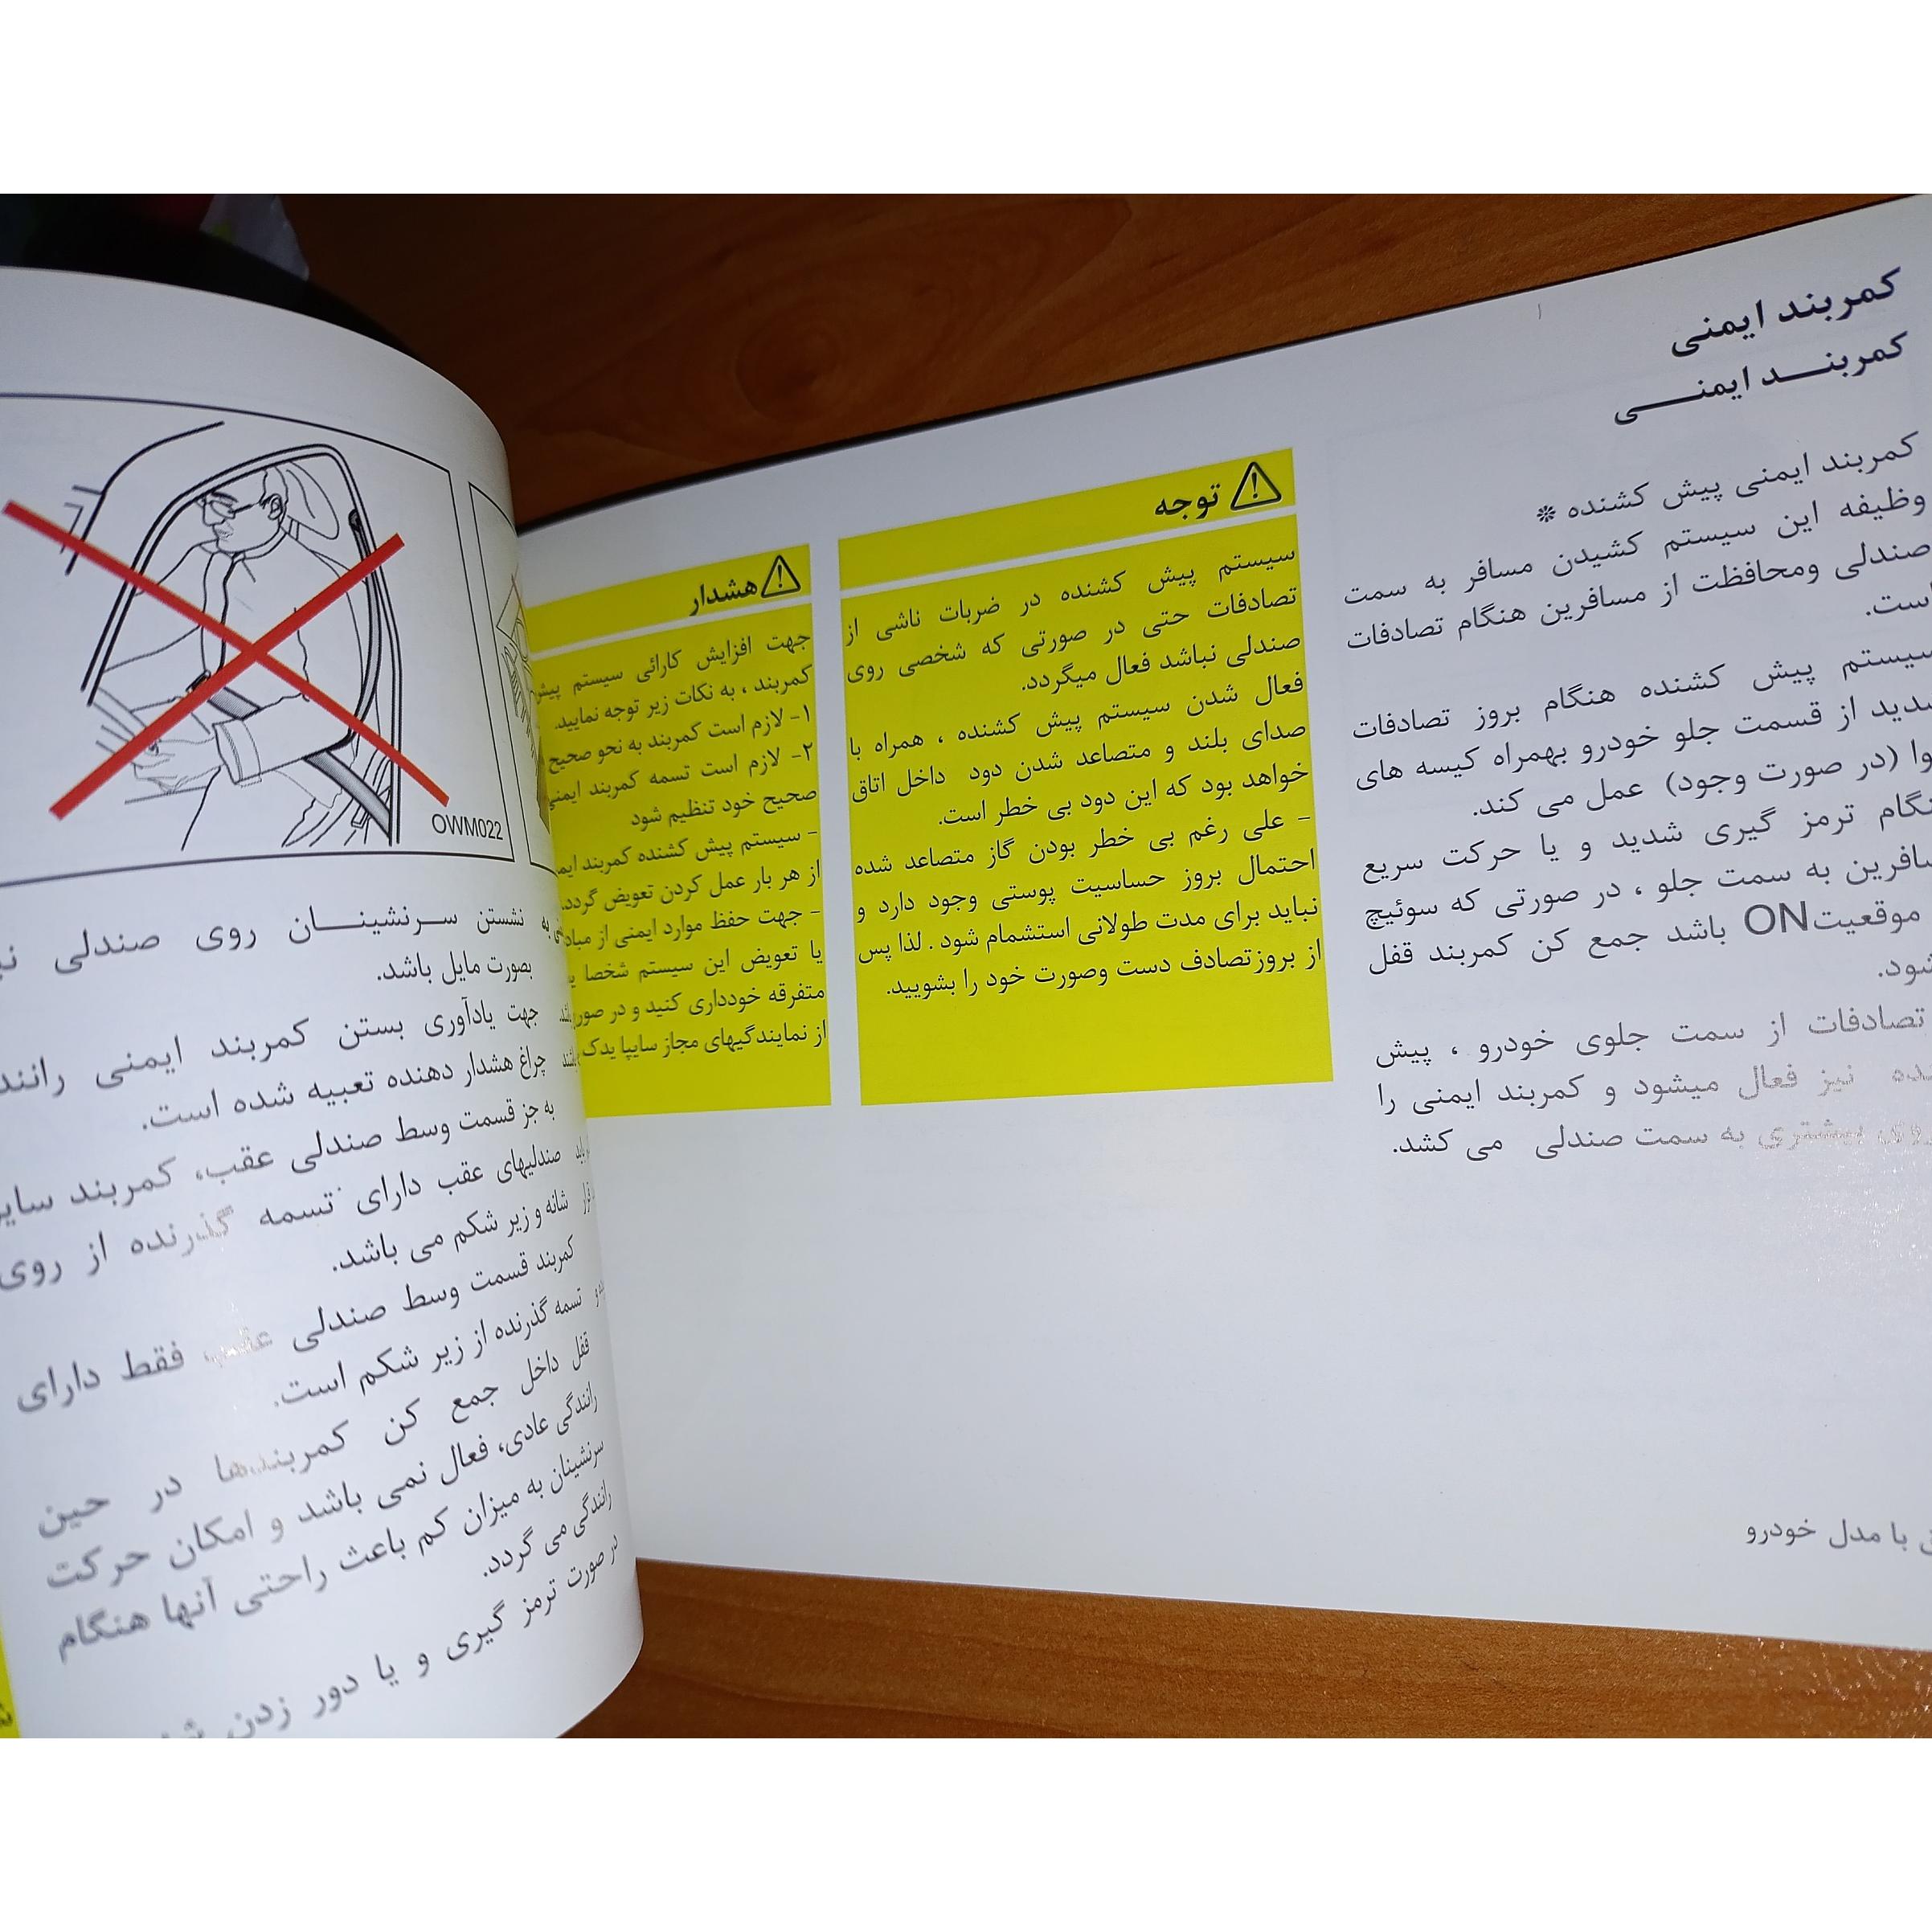 کمربند ایمنی
کمربنـــد ایمنـــی
کمربند ایمنی پیش کشنده ❊
وظیفه این سیستم کشیدن مسافر به سمت
صندلی ومحافظت از مسافرین هنگام تصادفات
است.
سیستم پیش کشنده هنگام بروز تصادفات
از قسمت جلو خودرو بهمراه کیسه های
(در صورت وجود) عمل می کند.
ترمز گیری شدید و یا حرکت سریع
به سمت جلو ، در صورتی که سوئیچ
موقعیتON باشد جمع کن کمربند قفل
تصادفات از سمت جلوی خودرو ، پیش
نیز فعال میشود و کمربند ایمنی را
بیشتری به سمت صندلی می کشد.
با مدل خودرو
توجه
سیستم پیش کشنده در ضربات ناشی از
تصادفات حتی در صورتی که شخصی روی
صندلی نباشد فعال میگردد.
فعال شدن سیستم پیش کشنده ، همراه با
صدای بلند و متصاعد شدن دود داخل اتاق
خواهد بود که این دود بی خطر است.
- علی رغم بی خطر بودن گاز متصاعد شده
احتمال بروز حساسیت پوستی وجود دارد و
نباید برای مدت طولانی استشمام شود . لذا پس
از بروزتصادف دست وصورت خود را بشویید.
هشدار
جهت افزایش کارائی سیستم پیش
کمربند ، به نکات زیر توجه نمایید.
۱- لازم است کمربند به نحو صحیح
۲- لازم است تسمه کمربند ایمنی
صحیح خود تنظیم شود
- سیستم پیش کشنده کمربند
از هر بار عمل کردن تعویض گردد.
- جهت حفظ موارد ایمنی از
یا تعویض این سیستم شخصا
متفرقه خودداری کنید و در
از نمایندگیهای مجاز سایپا یدک
OWM022
به نشستن سـرنشینـــان روی صندلی
بصورت مایل باشد.
جهت یادآوری بستن کمربند ایمنی
چراغ هشدار دهنده تعبیه شده است.
به جز قسمت وسط صندلی عقب، کمربند سایر
صندلیهای عقب دارای تسمه گذرنده از روی
شانه و زیر شکم می باشد.
کمربند قسمت وسط صندلی عقب فقط دارای
تسمه گذرنده از زیر شکم است.
قفل داخل جمع کن کمربندها در حین
رانندگی عادی، فعال نمی باشد و امکان حرکت
سرنشینان به میزان کم باعث راحتی آنها هنگام
رانندگی می گردد.
در صورت ترمز گیری و یا دور زدن